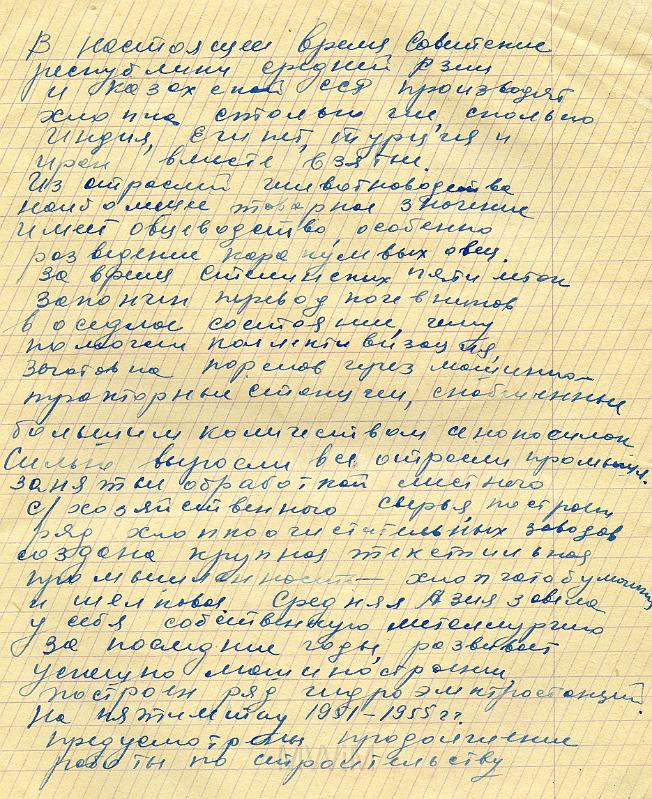 В настоящее время Советские
республики средней Азии
и Казахской ССР производят
хлопка столько же, сколько
Индия, Египет, Турция и
Иран, вместе взятые.
Из отраслей животноводства
наиболее товарное значение
имеет овцеводство, особенно
разведение каракулевых овец.
За время сталинских пятилеток
закончен перевод кочевников
в оседлое состояние, чему
помогли коллективизация,
заготовка кормов через машинно-
тракторные станции, снабженные
большим количеством сенокосилок
Сильно выросли все отрасли промышл.
занятые обработкой местного
с/хозяйственного сырья построен
ряд хлопкоочистительных заводов
создана крупная текстильная
промышленность — хлопчатобумажная
и шелковая. Средняя Азия завела
у себя собственную металлургию
За последние годы, развивает
успешно машиностроение,
построен ряд гидроэлектростанций.
На пятилетку 1951-1955 гг.
предусмотрены продолжение
работы по строительству